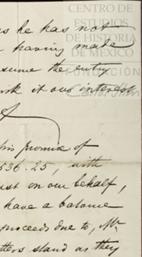 as he has not
having made
sume the entry
rk it our interest
of
his promise of
536.25, with
ust on our behalf,
have a balance
proceeds due to, Mr
tters stand as they
CENTRO DE
ESTUDIOS
DE HISTORIA
DE MEXICO